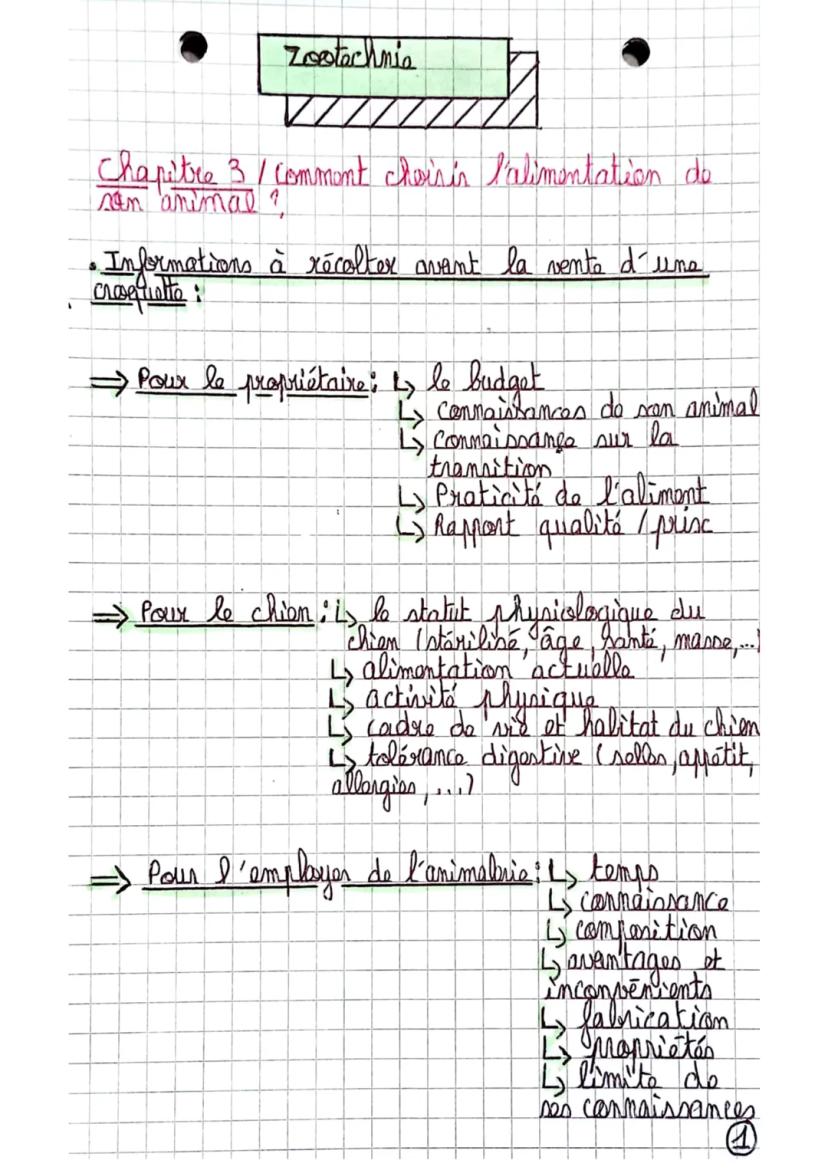 Zootechnie
Chapitre 3 / Comment choisir l'alimentation de
son animal ?
• Informations à récolter avant la vente d'une
croquette :
⇒ Pour le propriétaire : ↳ le budget
↳ connaissances de son animal
↳ connaissance sur la
transition
↳ Praticité de l'aliment
↳ Rapport qualité / prix
⇒ Pour le chien : ↳ le statut physiologique du
chien (stérilisé, âge, santé, masse, ...)
↳ alimentation actuelle
↳ activité physique
↳ cadre de vie et habitat du chien
↳ tolérance digestive (selles, appétit,
allergies, ...)
⇒ Pour l'employer de l'animalerie : ↳ temps
↳ connaissance
↳ composition
↳ avantages et
inconvénients
↳ fabrication
↳ propriétés
↳ limite de
ses connaissances
1